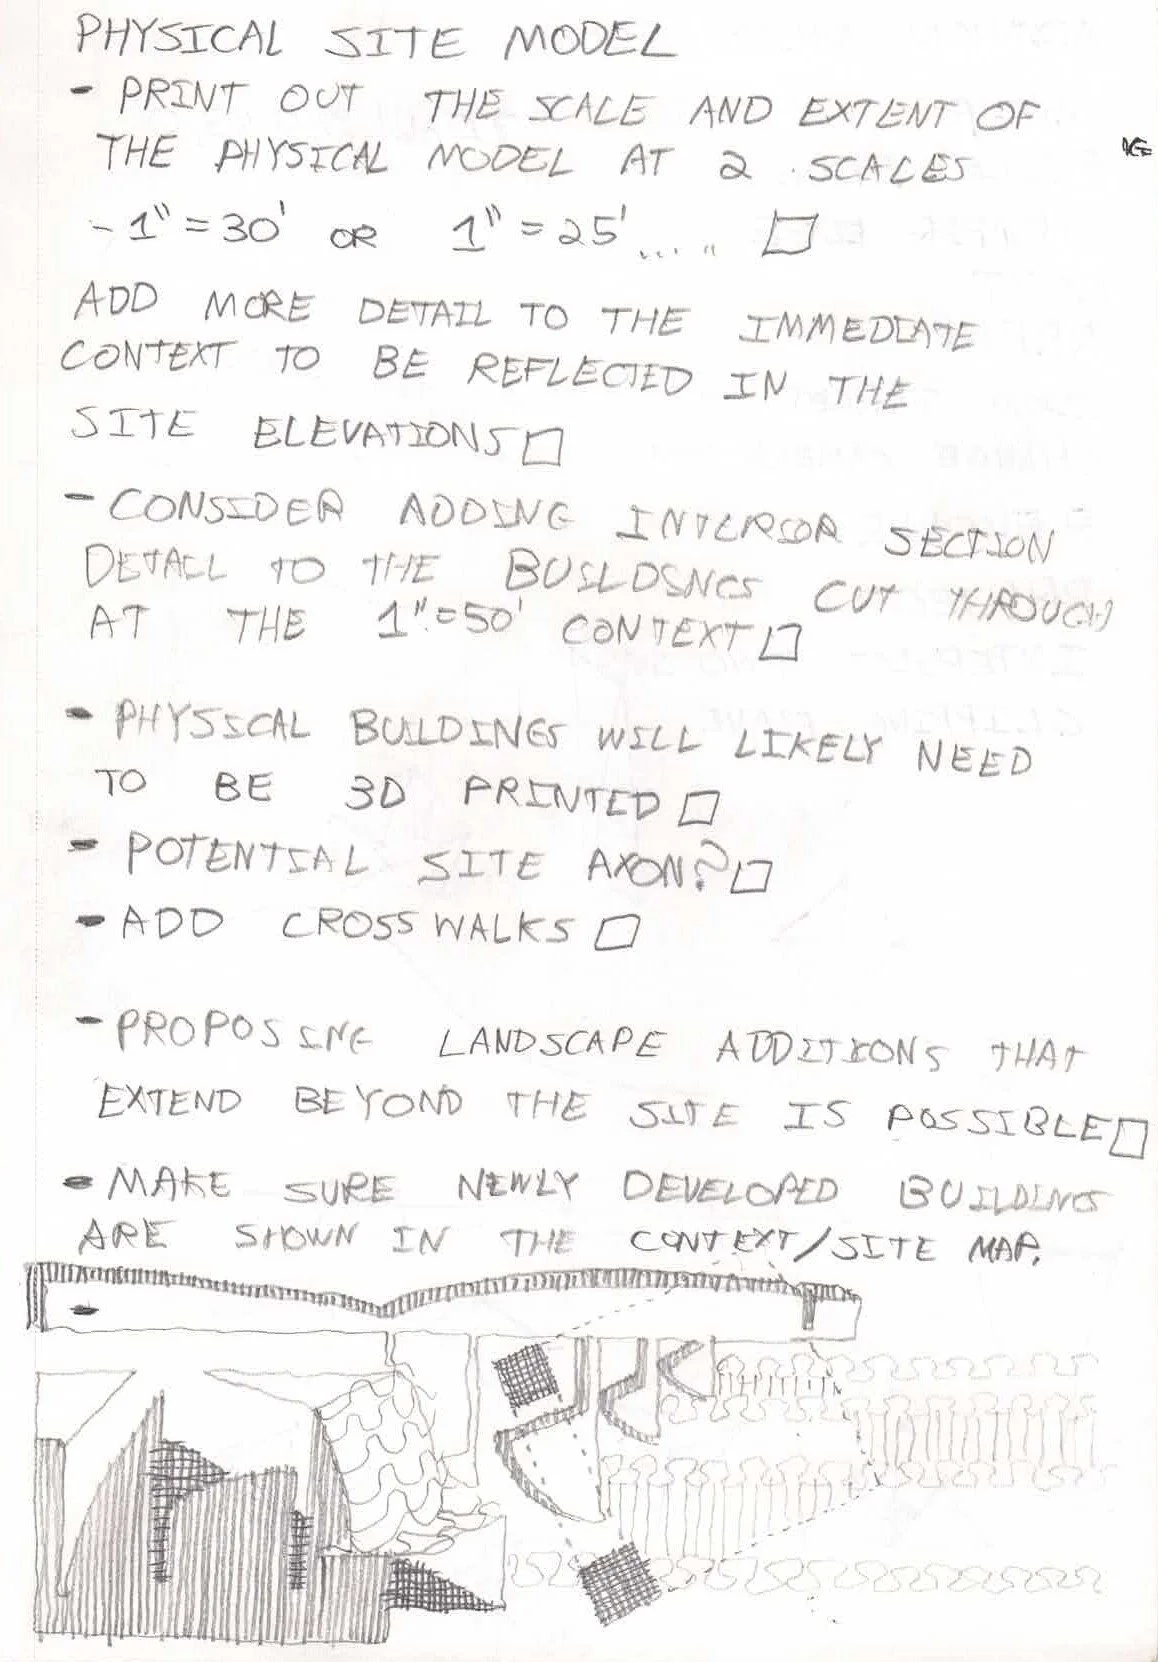 PHYSICAL SITE MODEL
- PRINT OUT THE SCALE AND EXTENT OF
THE PHYSICAL MODEL AT 2 SCALES
- 1" = 30' OR 1" = 25' .... ..
ADD MORE DETAIL TO THE IMMEDIATE
CONTEXT TO BE REFLECTED IN THE
SITE ELEVATIONS
- CONSIDER ADDING INTERIOR SECTION
DETAIL TO THE BUILDINGS CUT THROUGH
AT THE 1" = 50' CONTEXT
- PHYSICAL BUILDINGS WILL LIKELY NEED
TO BE 3D PRINTED
- POTENTIAL SITE AXON?
- ADD CROSSWALKS
- PROPOSING LANDSCAPE ADDITIONS THAT
EXTEND BEYOND THE SITE IS POSSIBLE
- MAKE SURE NEWLY DEVELOPED BUILDINGS
ARE SHOWN IN THE CONTEXT/SITE MAP.